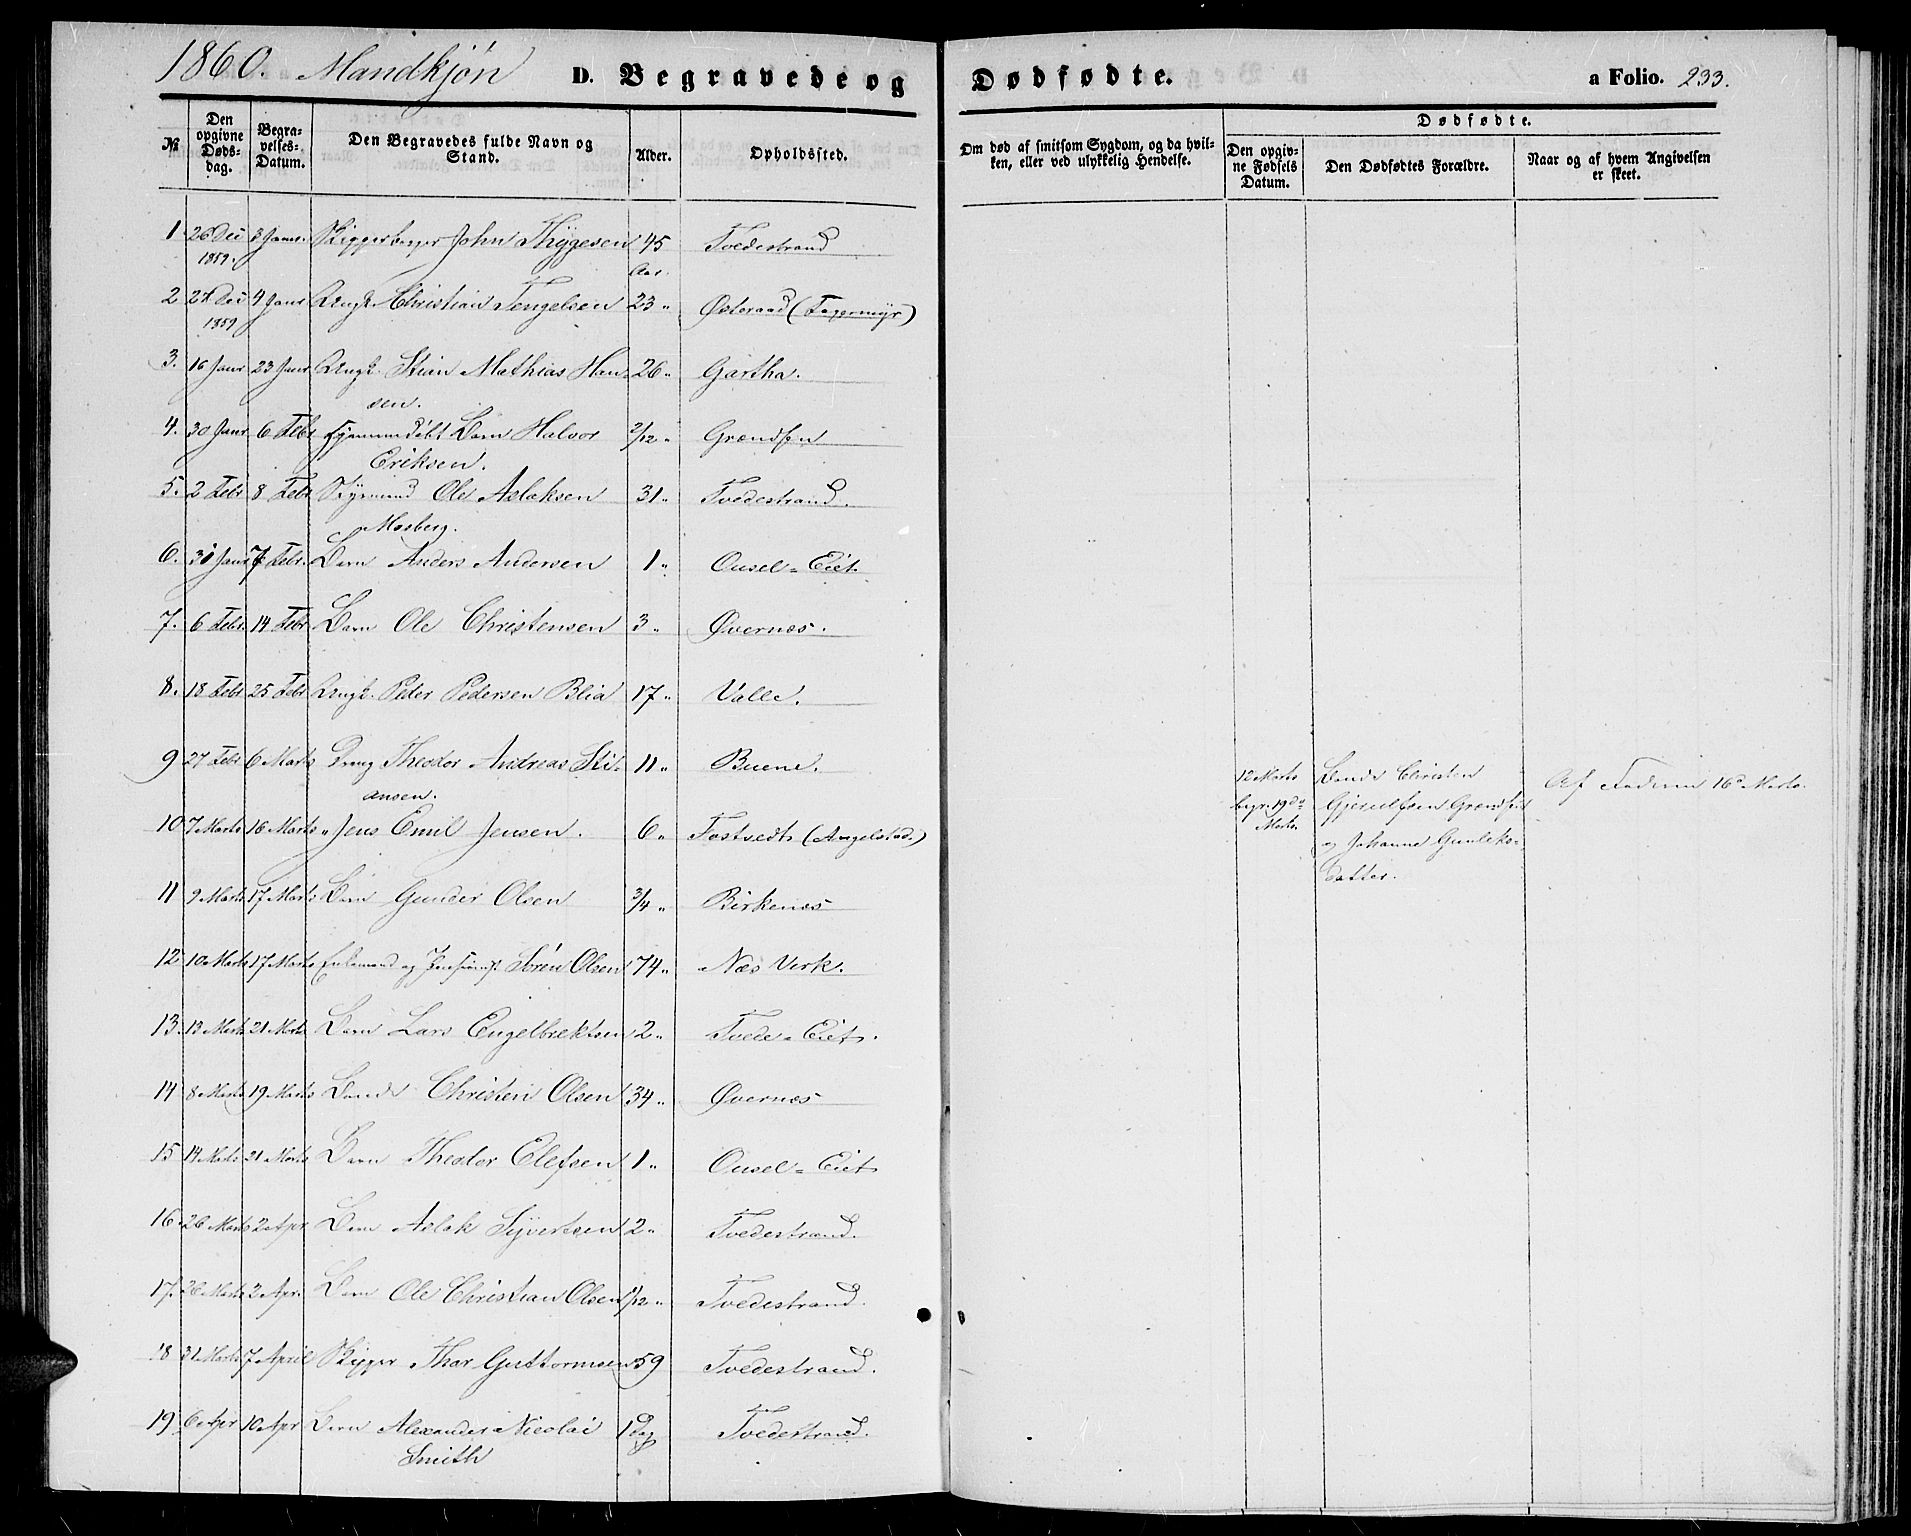 1860. Mandkjøn D. Begravede og Dødfødte. a Folio. 233.
No
Den opgivne Døds-dag.
Begra-velses-Datum.
Den Begravedes fulde Navn og Stand.
Alder.
Opholdssted.
Om død af smitsom Sygdom, og da hvil-
ken, eller ved ulykkelig Hendelse.
Dødfødte.
Den opgiv-ne Fødsels Datum.
Den Dødfødtes Forældre.
Naar og af hvem Angivelsen er skeet.
1 26 Dec 3 Janr. Skipperborger John Thygesen 45 Tvedestrand
1859. Aar.
2 27 Dec 4 Janr Ungk. Christian Tengelsen 23 " Østeraad (Fagermyr)
1859
3. 16 Janr 23 Janr Ungk. Stian Mathias Han- 26 " Gartha.
sen.
4. 30 Janr 6 Febr Hjemmedøbt Barn Halvor 2/12 " Grændsen
Eriksen.
5. 2 Febr 8 Febr Styrmand Ole Aslaksen 31 " Tvedestrand.
Mosberg.
6. 31 Janr 7 Febr. Barn Anders Andersen 1 " Ousel-Eiet.
7. 6 Febr. 14 Febr Barn Ole Christensen 3 " Øvernæs.
8. 18 Febr 25 Febr Ungk. Peder Pedersen Blia 17 " Valle.
9 27 Febr 6 Marts Dreng Theodor Andreas Sti- 11 " Buene.
ansen.
10 7 Marts 16 Marts " Jens Emil Jensen. 6 " Fostvedt (Angelstad.)
11 9 Marts 17 Marts Barn Gunder Olsen 3/4 " Birkenæs
12 10 Marts 17 Marts Enkemand og Pensionist Søren Olsen 74 " Næs Verk.
13. 13 Marts 21 Marts Barn Lars Engelbrektsen 2 " Tvede-Eiet.
14 8 Marts 19 Marts Bonde Christen Olsen 34 " Øvernæs
15 14 Marts 21 Marts Barn Theodor Elefsen 1 " Ousel-Eiet
16. 26 Marts 2 Apr Barn Aslak Syvertsen 2 " Tvedestrand.
17. 26 Marts 2 Apr. Barn Ole Christian Olsen /12 " Tvedestrand.
18 31 Marts 7 April Skipper Thor Guttormsen 59 Tvedestrand.
19 6 Apr 10 Apr Barn Alexander Nicolai 1 Dag Tvedestrand.
Smith
12 Marts Bonde Christen Af Faderen 16de Marts.
begr. 19de Gjerulfsen Grændsen
Marts. og Johanne Gunleks-
datter.